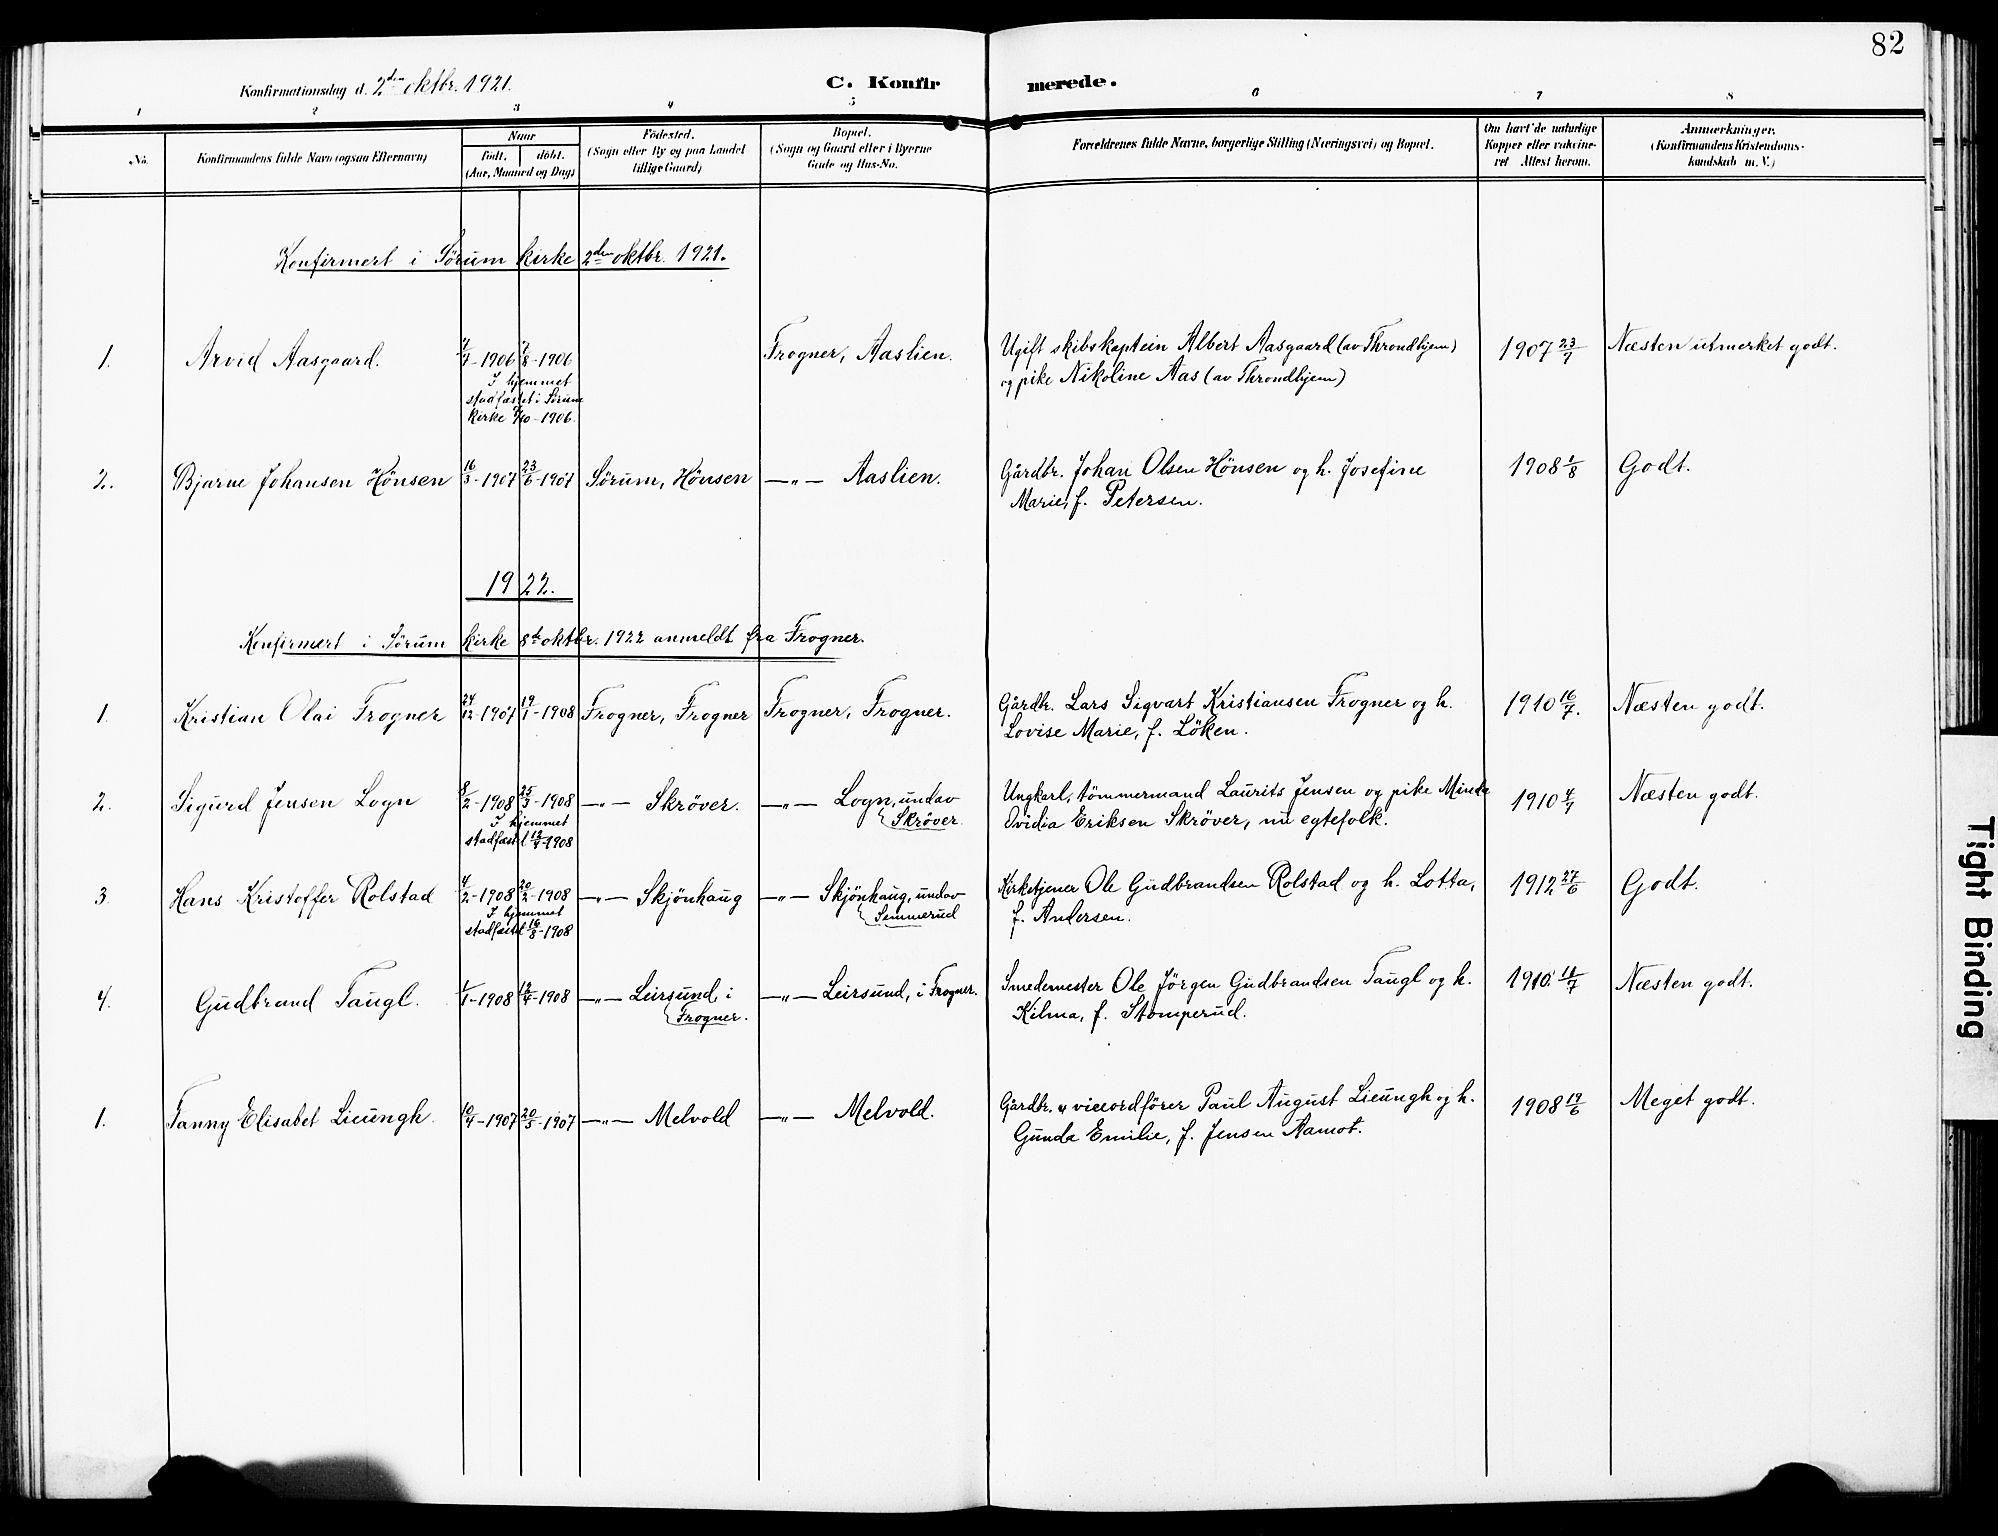 82
Konfirmationsdag d. 2den oktbr. 1921.
C. Konfirmerede.
1 2 3 4 5 6 7 8
No.
Konfirmandens fulde Navn (ogsaa Efternavn)
Naar
födt. döbt.
(Aar, Maaned og Dag)
Födested.
(Sogn eller By og paa Landet
tillige Gaard)
Bopæl.
(Sogn og Gaard eller i Byerne
Gade og Hus-No.
Forældrenes fulde Navne, borgerlige Stilling (Næringsvei) og Bopæl.
Om havt de naturlige
Kopper eller vakcine-
ret Attest herom.
Anmærkninger.
(Konfirmandens Kristendoms-
kundskab m. V.)
Konfirmert i Sörum kirke 2den oktbr. 1921.
1. Arvid Aasgaard. -1906 7/8-1906 Frogner, Aaslien. Ugift skibskaptein Albert Aasgaard (av Throndhjem) 1907 23/7 Næsten utmerket godt.
I hjemmet
stadfæstet i Sörum
kirke -1906.
og pike Nikoline Aas (av Throndhjem)
2. Bjarne Johansen Hönsen 16/3-1907 23/6-1907 Sörum, Hönsen —"— Aaslien. Gårdbr. Johan Olsen Hönsen og h. Josefine 1908 1/8 Godt.
Marie, f. Petersen.
1922.
Konfirmert i Sörum kirke 8de oktbr. 1922 anmeldt fra Frogner.
1. Kristian Olai Frogner 24/12-1907 19/1-1908 Frogner, Frogner Frogner, Frogner. Gårdbr. Lars Sigvart Kristiansen Frogner og h. 1910 16/7. Næsten godt.
Lovise Marie, f. Löken.
2. Sigurd Jensen Logn 8/2-1908 25/3-1908 —"— Skröver. —"— Logn, undav Ungkarl, tömmermand Laurits Jensen og pike Minda 1910 Næsten godt.
Skröver.
I hjemmet
stadfæstet -1908
Ovidia Eriksen Skröver, nu egtefolk.
3. Hans Kristoffer Rolstad 4/2-1908 20/2-1908 —"— Skjönhaug —"— Skjönhaug, undav Kirketjener Ole Gudbrandsen Rolstad og h. Lotta, 1912 27/6 Godt.
Semmerud
I hjemmet
stadfæstet 16/8-1908
f. Andersen.
4. Gudbrand Taugl. -1908 12/4-1908 —"— Leirsund, i —"— Leirsund, i Frogner. Smedemester Ole Jörgen Gudbrandsen Taugl og h. 1910. Næsten godt.
Frogner.
Kilma, f. Stomperud.
1. Fanny Elisabet Lieungh. 10/4-1907 20/5-1907 —"— Melvold —"— Melvold. Gårdbr. & viceordförer Paul August Lieungh og h. 1908 19/6 Meget godt.
Gunda Emilie, f. Jensen Aamot.
Tight Binding